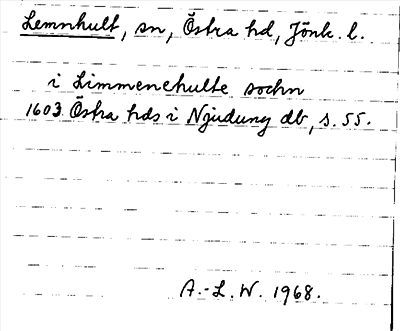 Lemnhult, sn, Östra hd, Jönk. l.
i Limmenehulte sochn
1603 Östra hds i Njudung db, s. 55.
A.-L. W. 1968.